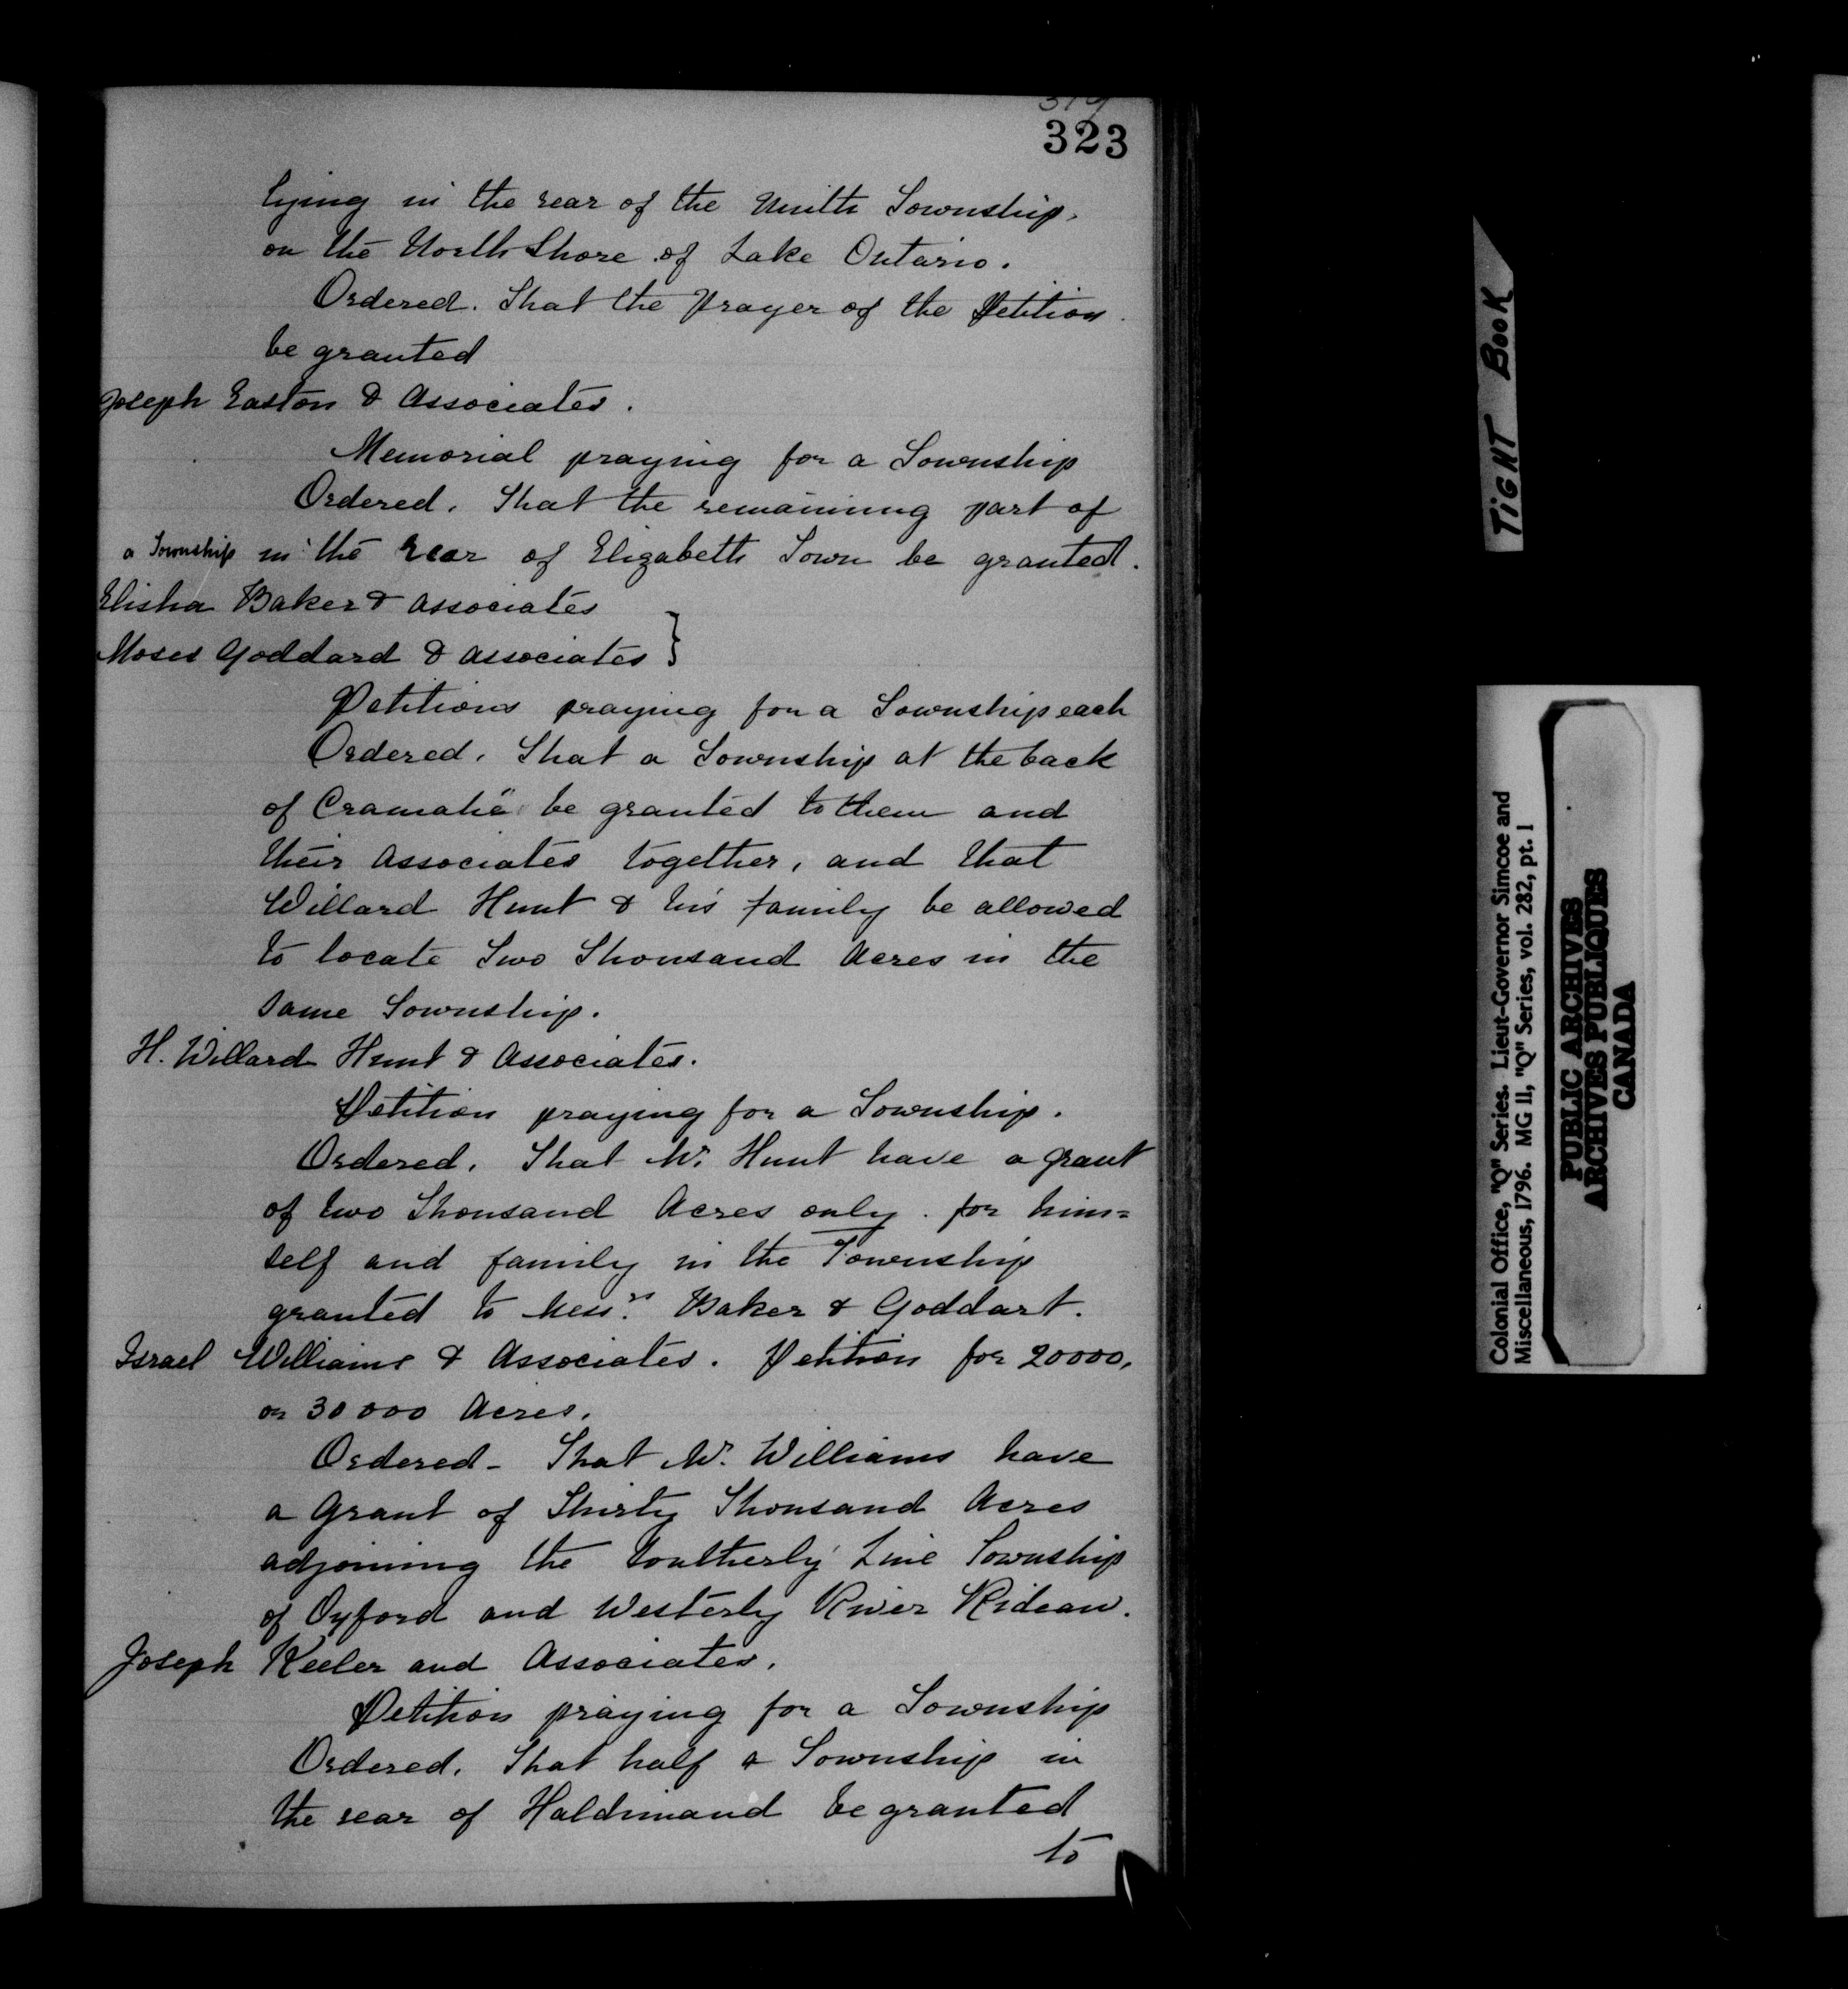 323
lying in the rear of the Ninth Township.
on the North Shore of Lake Ontario.
Ordered. That the Prayer of the Petition
be granted
Joseph Easton & Associates.
Memorial praying for a Township
Ordered. That the remaining part of
a Township in the rear of Elizabeth Town be granted.
Elisha Baker & Associates
Moses Goddard & Associates }
Petitions praying for a Township each
Ordered. That a Township at the back
of Cramahé be granted to them and
their Associates together, and that
Willard Hunt & his family be allowed
to locate Two Thousand Acres in the
same Township.
H. Willard Hunt & Associates.
Petition praying for a Township.
Ordered. That Mr. Hunt have a grant
of two Thousand Acres only. for him=
self and family in the Township
granted to Messrs. Baker & Goddart.
Israel Williams & Associates. Petition for 20000,
or 30000 Acres.
Ordered - That Mr. Williams have
a Grant of Thirty Thousand Acres
adjoining the Southerly Line Township
of Oxford and Westerly River Rideau.
Joseph Keeler and Associates.
Petition praying for a Township
Ordered. That half a Township in
the rear of Haldimand be granted
to
TIGHT BOOK
Colonial Office, "Q" Series. Lieut-Governor Simcoe and
Miscellaneous, 1796. MG 11, "Q" Series, vol. 282, pt. 1
PUBLIC ARCHIVES
ARCHIVES PUBLIQUES
CANADA